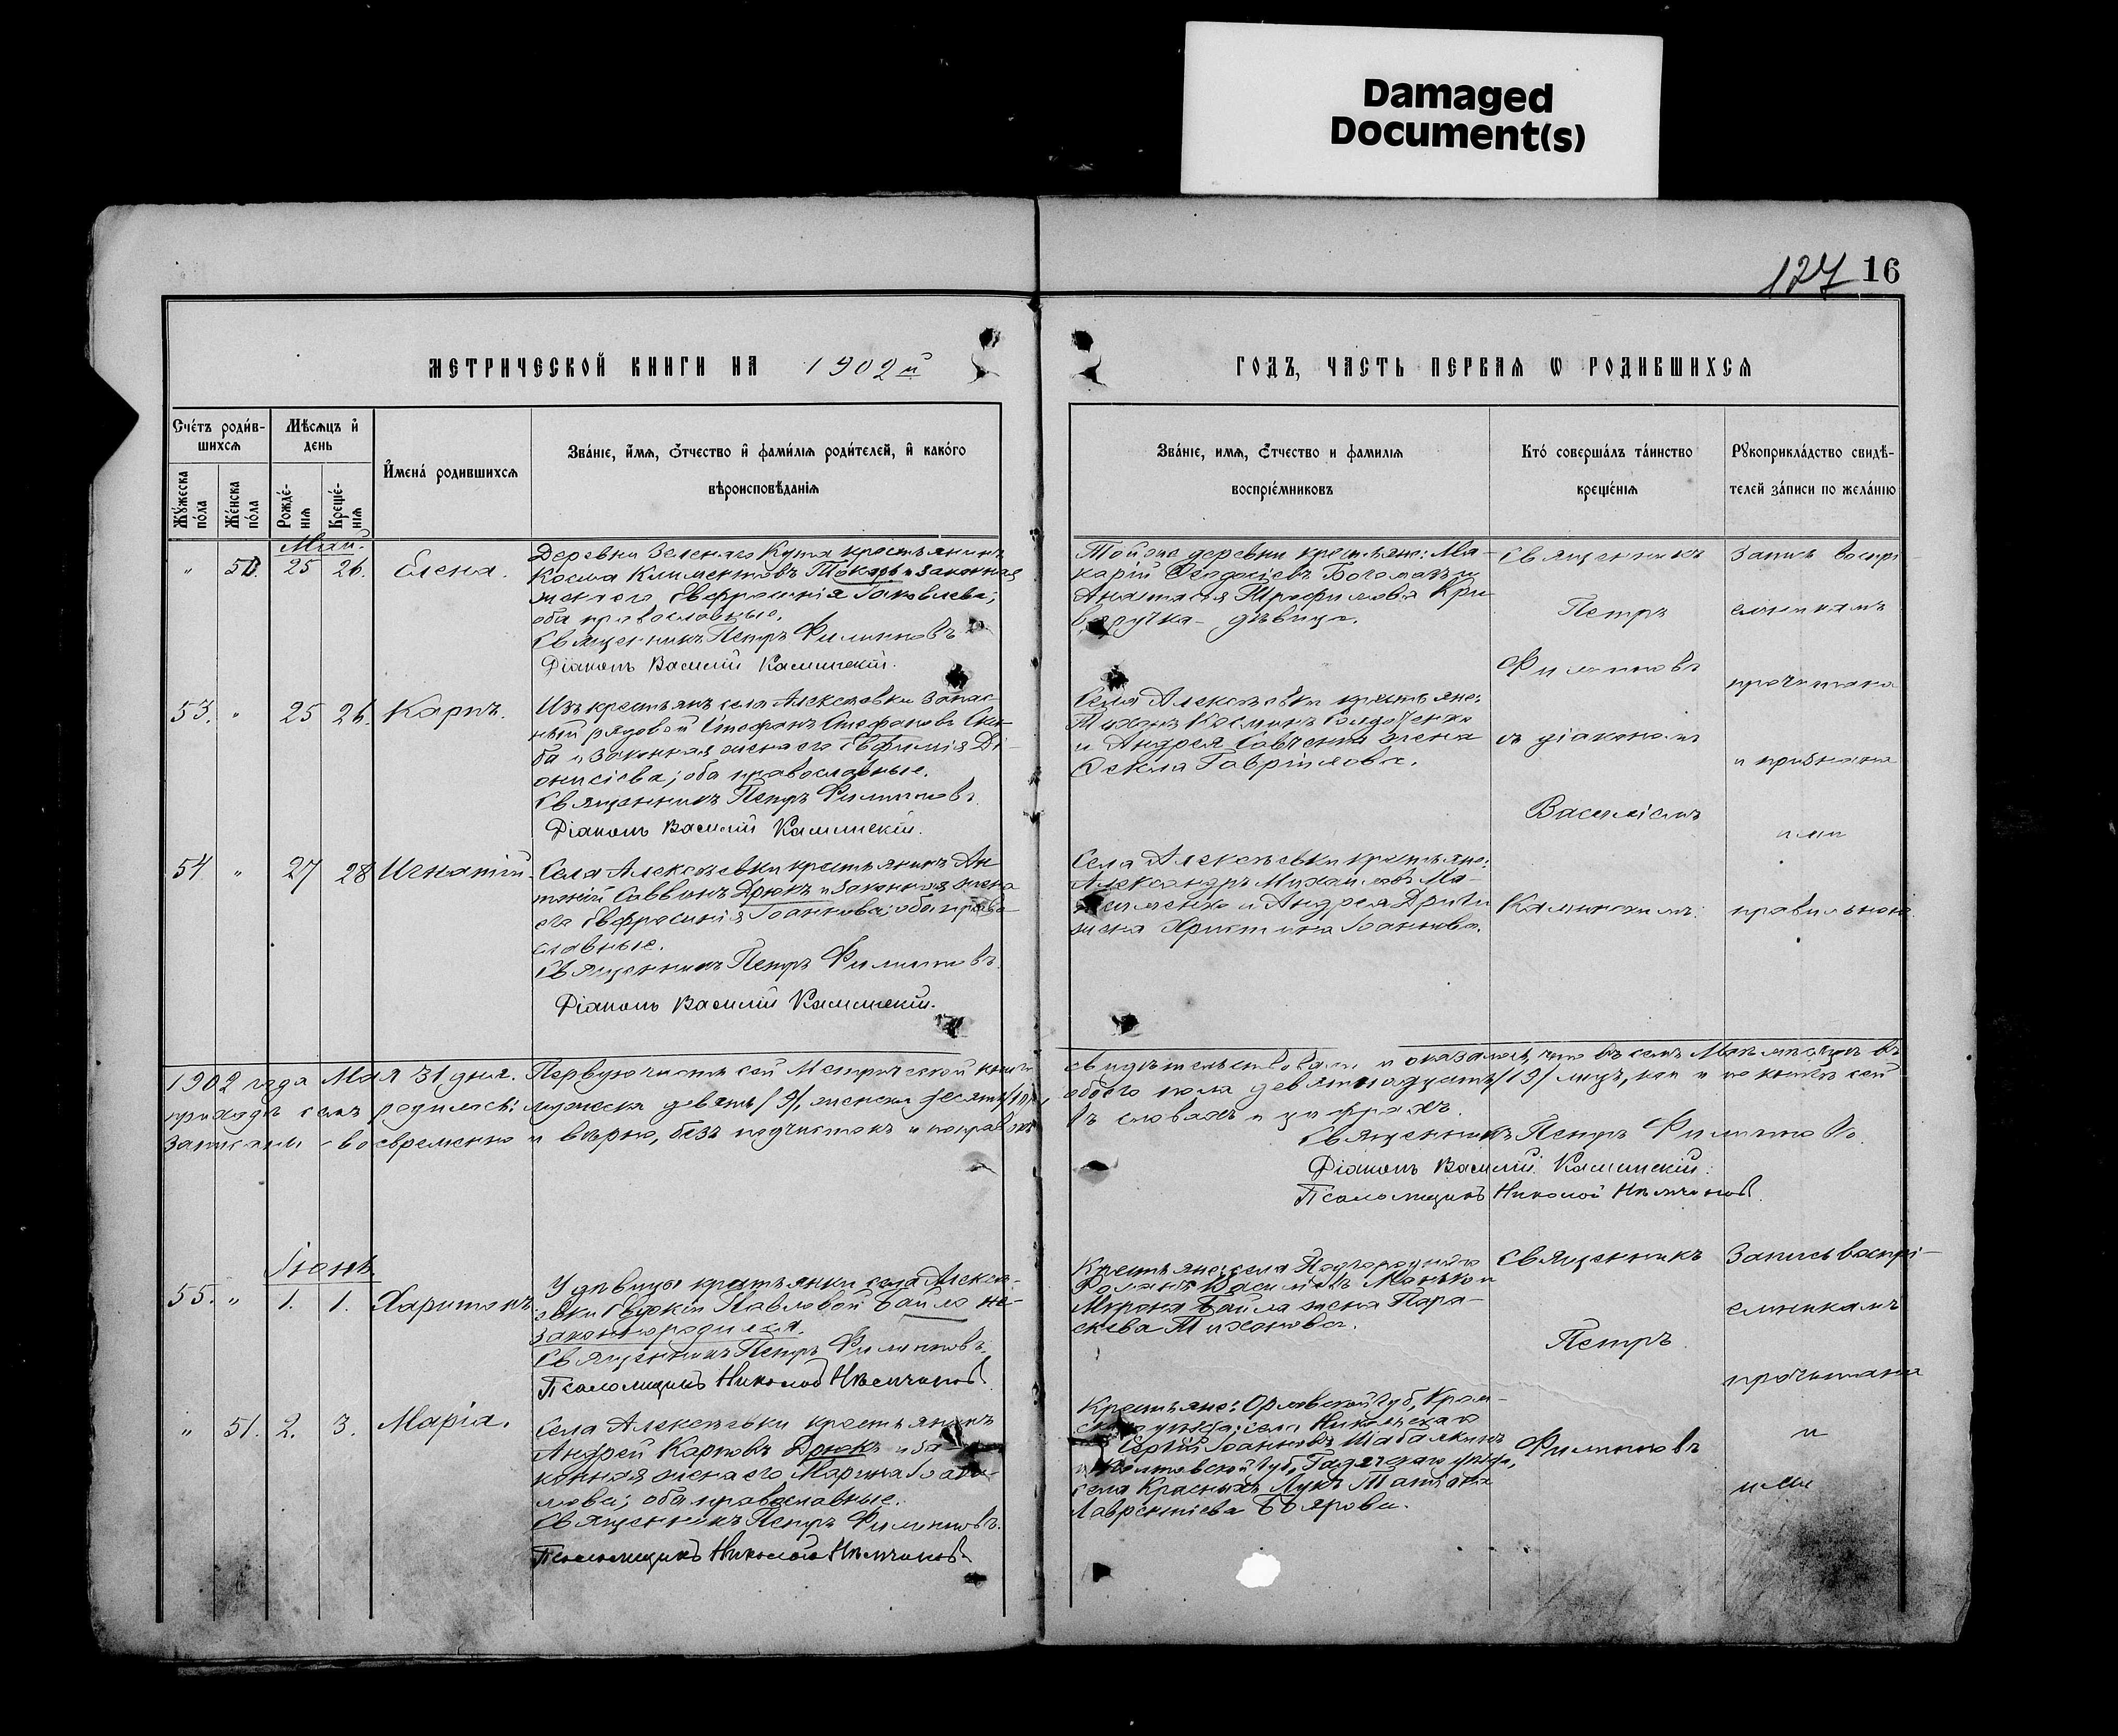 Damaged
Document(s)
127 16
МЕТРИЧЕСКОЙ КНИГИ НА 1902й
ГОДЪ, ЧАСТЬ ПЕРВАЯ Ѡ РОДИВШИХСЯ
Счетъ родив-
шихся
Мѣсяцъ и
день
Имена родившихся
Званіе, имя, отчество и фамилія родителей, и какого
вѣроисповѣданія
Мужеска
пола
Женска
пола
Рожде-
нія
Креще-
нія
Званіе, имя, отчество и фамилія
воспріемниковъ
Кто совершалъ таинство
крещенія
Рукоприкладство свидѣ-
телей записи по желанію
Май.
" 50. 25 26. Елена.
Деревни Зеленаго Кута крестьянинъ
Косма Климентовъ Токарь и законная
жена его Евфросинія Іаковлева;
оба православные.
Священникъ Петръ Филипповъ
Діаконъ Василій Каминскій.
Той же деревни крестьяне: Ма-
карій Феодосіевъ Богомазъ и
Анастасія Трофимова Кри
воручка - дѣвица.
Священникъ
Петръ
Филипповъ
съ діакономъ
Василіемъ
Каминскимъ.
Запись воспрі
емникамъ
прочитана
и признана
ими
правильною.
53. " 25 26. Карпъ.
Изъ крестьянъ села Алексѣевки запас-
ный рядовой Стефанъ Стефановъ
ба и законная жена его Евфимія Ді-
онисіева; оба православные.
Священникъ Петръ Филипповъ.
Діаконъ Василій Каминскій.
Села Алексѣевки крестьяне:
Тихонъ Косминъ
и Андрея Савченка жена
Фекла Гавріилова.
54 " 27 28 Игнатій.
Села Алексѣевки крестьянинъ Ан
тоній Саввинъ Дрюкъ и законная жена
его Евфросинія Іоаннова; оба право-
славные.
Священникъ Петръ Филипповъ.
Діаконъ Василій Каминскій.
Села Алексѣевки крестьяне:
Александръ Михаиловъ Ма-
и Андрея
жена Христина Іоаннова.
1902 года Мая 31 дня. Первую часть сей Метрической книги
приходѣ семъ родилось: мужеска девять /9/, женска десять /10/,
записаны своевременно и вѣрно, безъ подчистокъ и поправокъ
свидѣтельствовали и оказалось, что въ семъ Маѣ мѣсяцѣ въ
обоего пола девятнадцать /19/ лицъ, кои и по книгѣ сей
въ словахъ и цифрахъ.
Священникъ Петръ Филипповъ.
Діаконъ Василій Каминскій.
Псаломщикъ Николай Нѣмчиновъ.
Іюнь.
55. " 1. 1. Харитонъ
У дѣвицы крестьянки села Алексѣ-
евки Евдокіи Павловой Байло не-
законнородился.
Священникъ Петръ Филипповъ.
Псаломщикъ Николай Нѣмчиновъ.
Крестьяне: села Подгороднаго
Романъ Манько и
Мирона Байла жена Пара-
скева Тихонова.
Священникъ
Петръ
Филипповъ
Запись воспрі-
емникамъ
прочитана
и
ими
" 51. 2. 3. Марія.
Села Алексѣевки крестьянинъ
Андрей Карповъ Дрюкъ и за-
конная жена его Марина
оба православные.
Священникъ Петръ Филипповъ.
Псаломщикъ Николай Нѣмчиновъ
Крестьяне: Орловской губ., Кром-
скаго уѣзда, села Никольскаго
Сергій Іоанновъ Шабалкинъ
и Полтавской губ., Гадячскаго уѣзда,
села Красныхъ Лукъ Татіана
Лаврентіева Боярова.